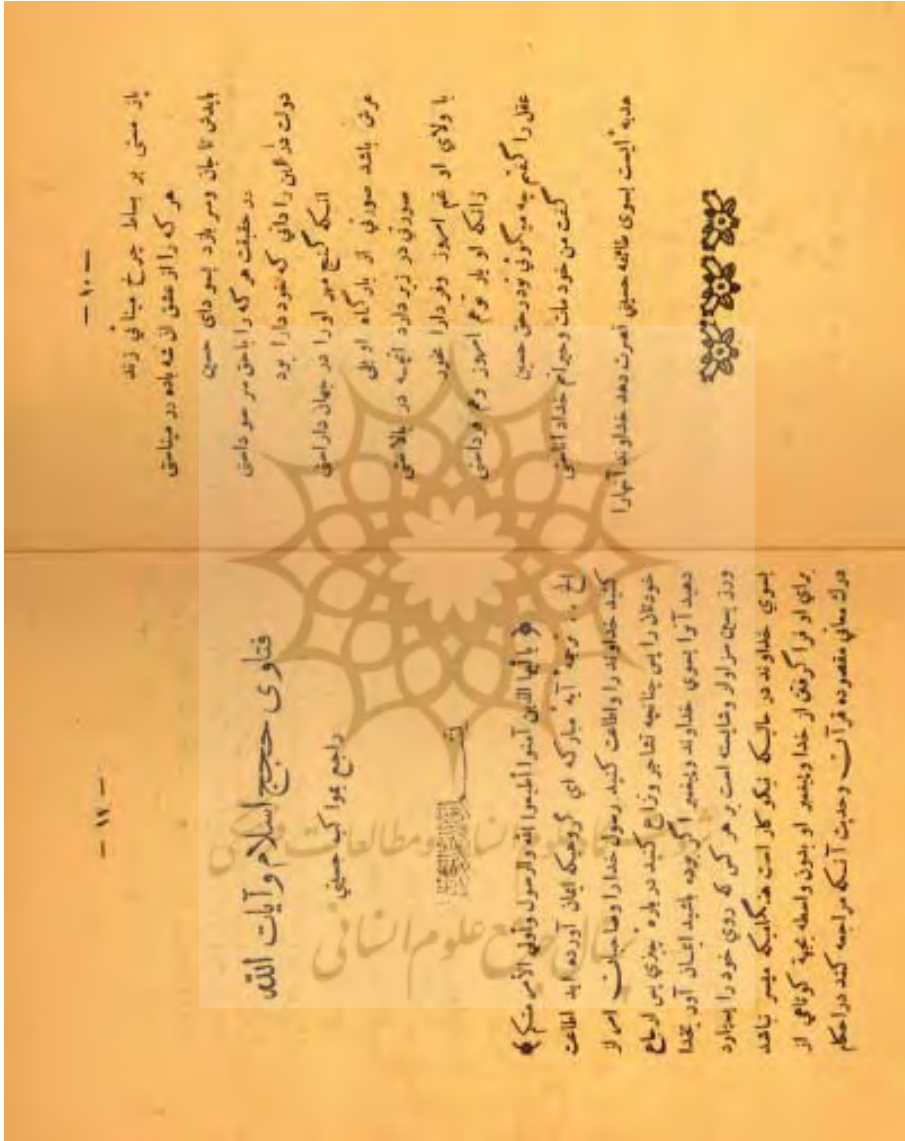 — ۱۰ —
باز مستی بر بساط چرخ مینائی زند
هر که را از عشق از شه باده در میناستی
بایدش تا جان وسر بازد بسودای حسین
در حقیقت هر که را با حق سر سوداستی
دولت دارین را دانی که خود دارا بود
آنکه گنج مهر او را در جهان داراستی
عرش باشد صورتی از بارگاه او بلی
صورتی در زیر دارد آنچه در بالاستی
با ولای او غم امروز وفردارا مخور
زانکه او یار توهم امروز وهم فرداستی
عقل را گفتم چه میگوئی تودرحق حسین
گفت من خود مات وحیرانم خدا داناستی
هدیه ایست بسوی طائفه حسینی نصرت دهد خداوند آنهارا
— ۱۷ —
فتاوی حجج اسلام و آیات الله
راجع بمواکب حسینی
﴿ یا أیها الذین آمنوا أطیعوا الله والرسول وأولی الأمر منکم ﴾
الخ . . ترجمهٔ آیه مبارکه ای گروهیکه ایمان آورده اید اطاعت
کنید خداوند را واطاعت کنید رسول خدارا وصاحبان امر از
خودتان را پس چنانچه تشاجر ونزاع کنید در باره چیزی پس ارجاع
دهید آنرا بسوی خداوند وپیغمبر اگر بوده باشید ایمان آور بخدا
وروز پسین سزاوار وشایسته است بر هر کس که روی خود را بیارد
بسوی خداوند در حالیکه نیکو کار است هنگامیکه میسر نباشد
برای او فرا گرفتن از خدا وپیغمبر او بدون واسطه بجهة کوتاهی از
درك معانی مقصوده قرآن وحدیث آنکه مراجعه کند در احکام
پرتال جامع علوم انسانی